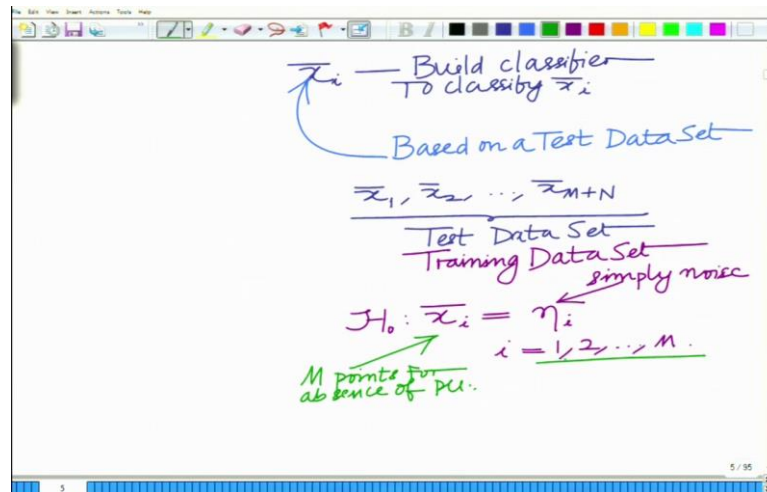 File Edit View Insert Actions Tools Help
B I
x̄ᵢ — Build classifier
To classify x̄ᵢ
Based on a Test Data Set
x̄₁, x̄₂, ..., x̄M+N
Test Data Set
Training Data Set
simply noise
H₀: x̄ᵢ = ηᵢ
i = 1, 2, ..., M.
M points for
absence of PU.
5 / 95
5